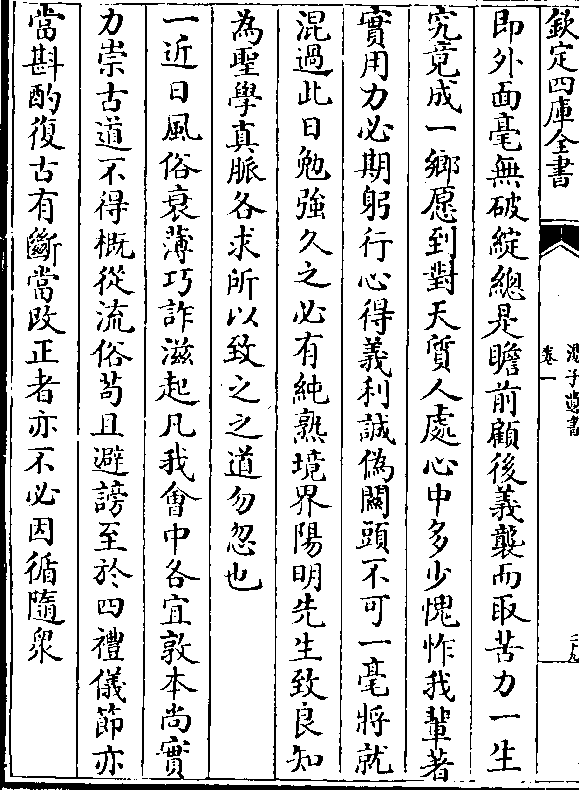 欽定四庫全書
卷一
即外面毫無破綻總是瞻前顧後義襲而取苦力一生
究竟成一鄉愿到對天質人處心中多少愧怍我輩著
實用力必期躬行心得義利誠偽關頭不可一毫將就
混過此日勉強久之必有純熟境界陽明先生致良知
為聖學真脈各求所以致之之道勿忽也
一近日風俗衰薄巧詐滋起凡我會中各宜敦本尚實
力崇古道不得概從流俗苟且避謗至於四禮儀節亦
當斟酌復古有斷當改正者亦不必因循隨衆